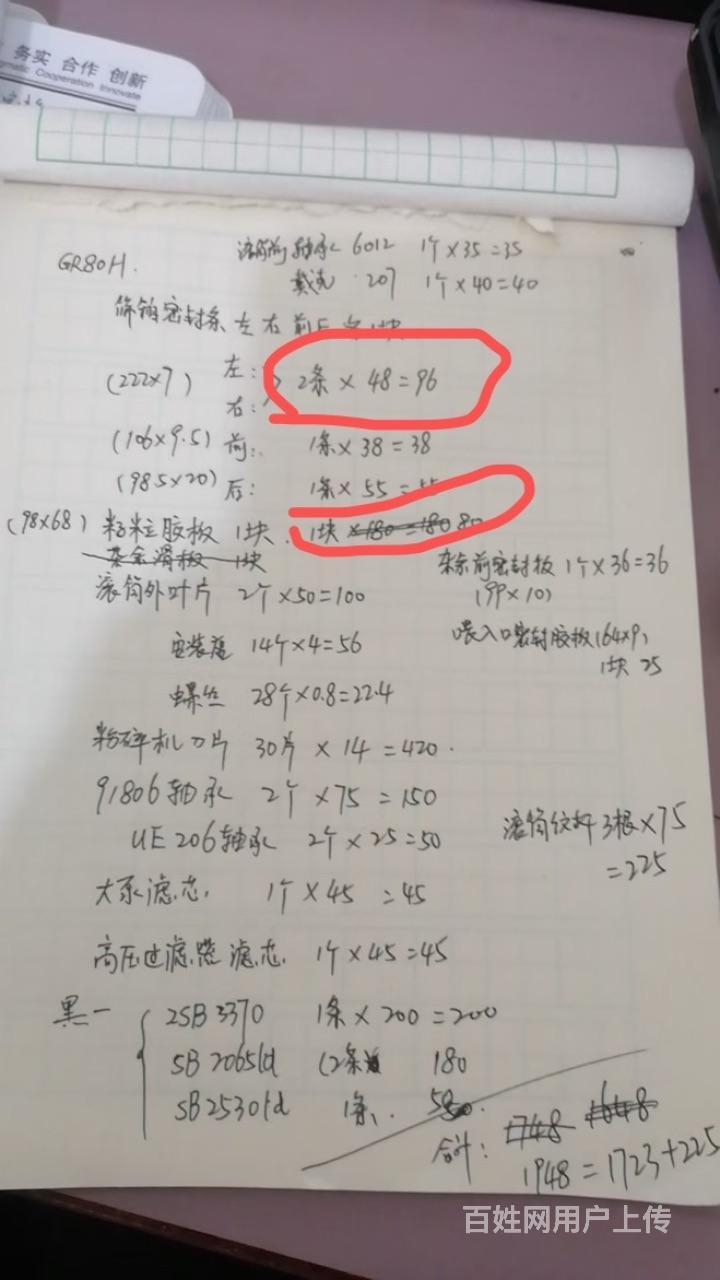 务实 合作 创新
Cooperation Innovate
GR80H.
滚筒前轴承 6012 1个×35=35
207 1个×40=40
筛箱密封条 左右前后
(222×7) 左: 右: 2条 × 48=96
(106×9.5) 前: 1条×38=38
(98.5×20) 后: 1条× 55=55
(98×68) 籽粒胶板 1块. 1块 ×180=180 80
杂余滑板 1块
杂余前密封板 1个×36=36
(99×10)
滚筒外叶片 2个×50=100
喂入口密封胶板(64×9)
1块 25
安装座 14个×4=56
螺丝 28个×0.8=22.4
粉碎机刀片 30片 × 14 =420.
91806轴承 2个 ×75 =150
UE 206轴承 2个 × 25=50
滚筒纹杆3根×75
=225
大泵滤芯. 1个×45 =45
高压过滤器滤芯. 1个×45=45
黑一
2SB3370 1条× 200 =200
SB 2065ld (2条 180
SB2530ld 1条.
合计: 1748 1648
1948=1723+225
百姓网用户上传